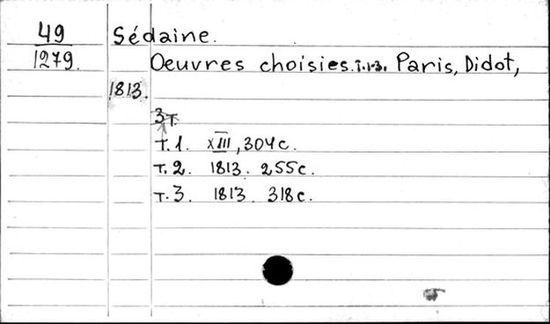 49 Sédaine.
1279. Oeuvres choisies. т.1-3. Paris, Didot,
1813.
3т.
т.1. XIII, 304с.
т.2. 1813. 255с.
т.3. 1813. 318с.